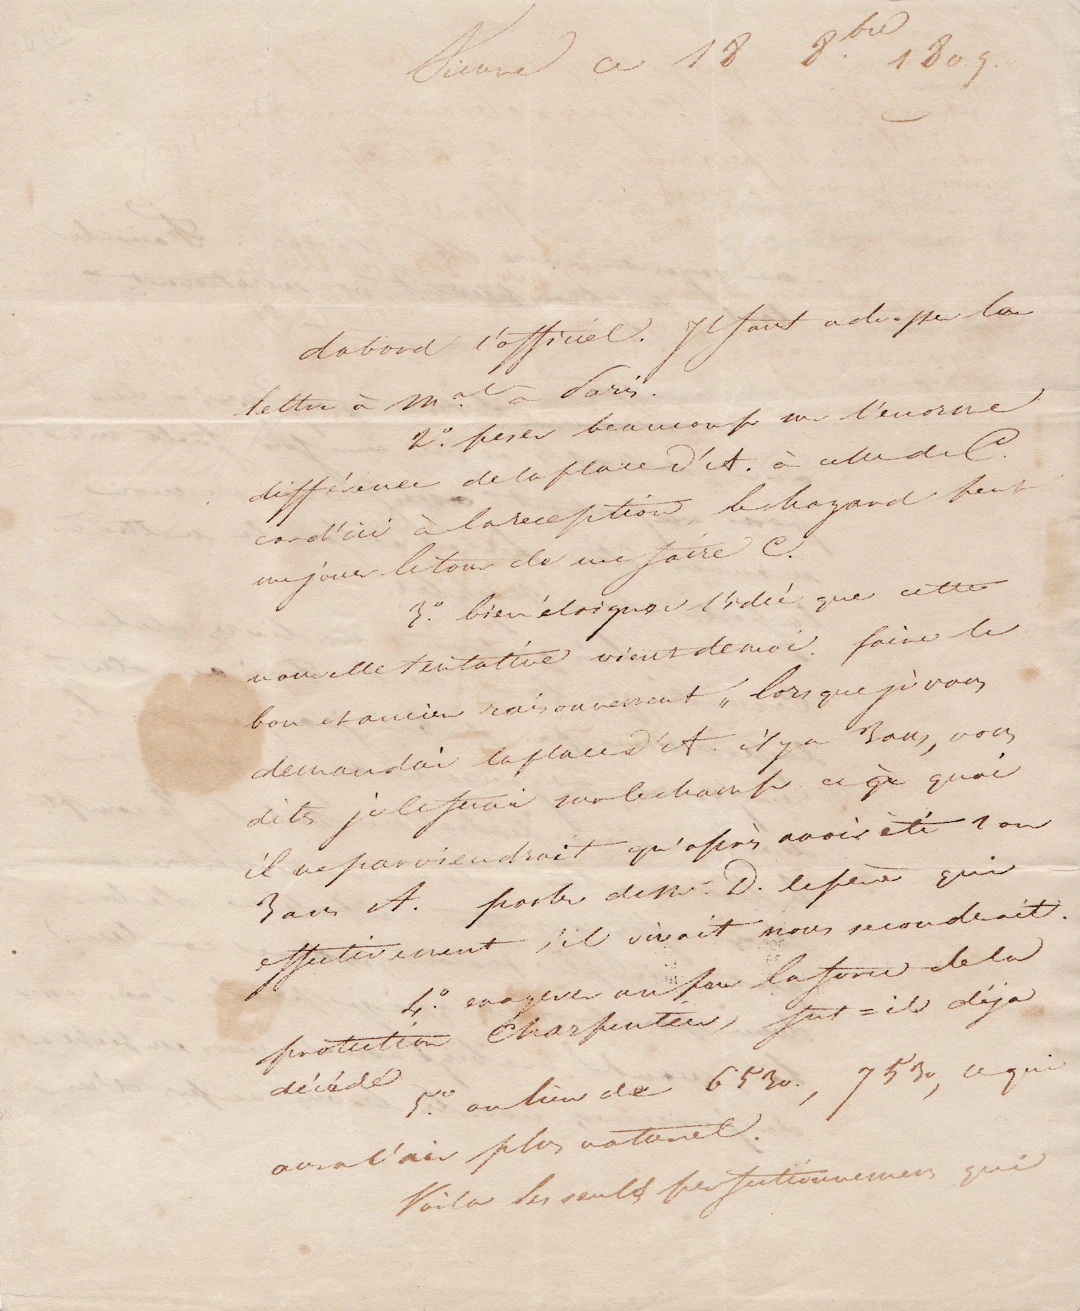 Vienne ce 18 8.bre 1809.
dabord l'officiel. Il faut adresser la
lettre à Mal à Paris.
2.° peser beaucoup sur l'enorme
différence de la place d'A. à celle de C.
car d'ici à la reception le hazard peut
me jouer le tour de me faire C.
3.° bien éloigner l'idée que cette
nouvelle tentative vient de moi. faire le
bon et ancien raisonnement „ lorsque je vous
demandai la place d'A. il y a 3 ans, vous
dites je le ferai sur le champ ce à quoi
il ne parviendrait qu'après avoir été 2 ou
3 ans A. parler de Mr. D. le père qui
effectivement s'il vivait nous seconderait.
4.° exagerer un peu la force de la
protection Charpentier, fut=il déja
décédé
5.° au lieu de 6530., 7530, ce qui
aura l'air plus naturel.
Voila les seuls perfectionnemens qui